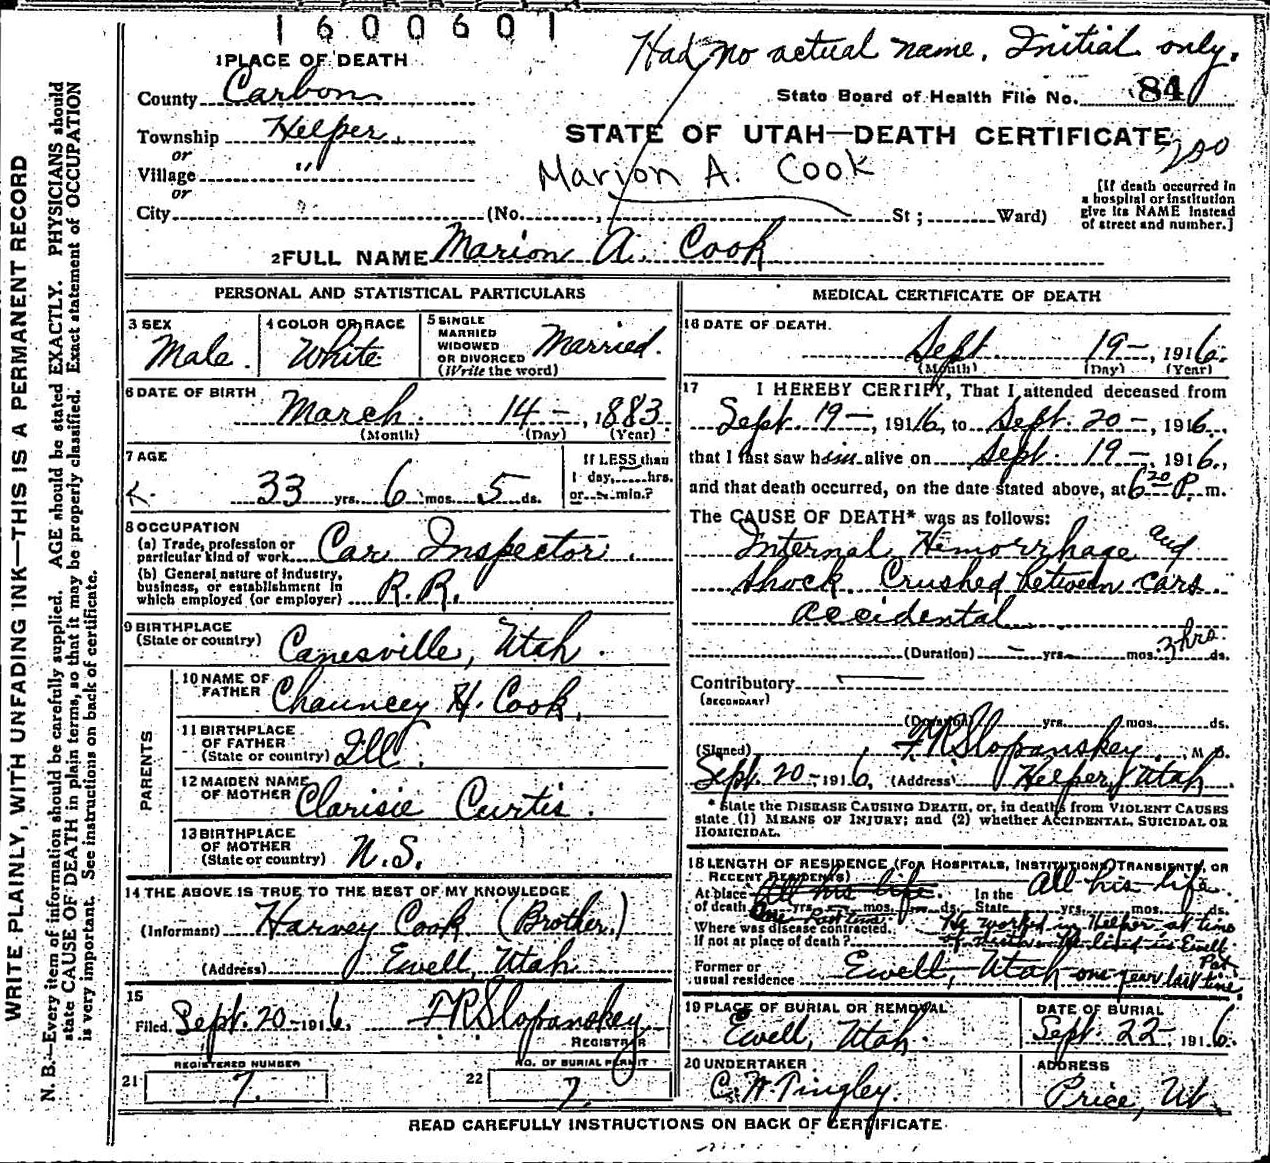 1600601
Had no actual name. Initial only.
1 PLACE OF DEATH
County Carbon
State Board of Health File No. 84
Township Helper.
or
STATE OF UTAH—DEATH CERTIFICATE
200
Village "
or
Marion A. Cook
[If death occurred in
a hospital or institution
give its NAME instead
of street and number.]
City (No. , St; Ward)
2 FULL NAME Marion A. Cook
PERSONAL AND STATISTICAL PARTICULARS
3 SEX
Male.
4 COLOR OR RACE
White
5 SINGLE
MARRIED
WIDOWED
OR DIVORCED
(Write the word)
Married.
6 DATE OF BIRTH
March 14 — , 1883
(Month) (Day) (Year)
7 AGE
33 yrs. 6 mos. 5 ds.
If LESS than
1 day, hrs.
or min.?
8 OCCUPATION
(a) Trade, profession or
particular kind of work Car Inspector.
(b) General nature of industry,
business, or establishment in
which employed (or employer) R.R.
9 BIRTHPLACE
(State or country) Canesville, Utah.
PARENTS
10 NAME OF
FATHER Chauncey H. Cook.
11 BIRTHPLACE
OF FATHER
(State or country) Ill.
12 MAIDEN NAME
OF MOTHER Clarisie Curtis.
13 BIRTHPLACE
OF MOTHER
(State or country) N.S.
14 THE ABOVE IS TRUE TO THE BEST OF MY KNOWLEDGE
(Informant) Harvey Cook (Brother.)
(Address) Ewell, Utah
15
Filed Sept. 20 - 1916. F R Slopanskey
REGISTRAR
REGISTERED NUMBER
21 7.
NO. OF BURIAL PERMIT
22 7.
MEDICAL CERTIFICATE OF DEATH
16 DATE OF DEATH.
Sept. 19 — , 1916.
(Month) (Day) (Year)
17 I HEREBY CERTIFY, That I attended deceased from
Sept 19 — , 1916, to Sept. 20 — , 1916.,
that I last saw him alive on Sept. 19 — , 1916.,
and that death occurred, on the date stated above, at 6 20 P. m.
The CAUSE OF DEATH* was as follows:
Internal Hemorrhage and
shock Crushed between cars.
Accidental
(Duration) — yrs. mos. 3 hrs. ds.
Contributory
(SECONDARY)
(Duration) yrs. mos. ds.
(Signed) F R Slopanskey M D.
Sept. 20 - 1916, (Address) Helper, Utah
* State the DISEASE CAUSING DEATH, or, in deaths from VIOLENT CAUSES
state (1) MEANS OF INJURY; and (2) whether ACCIDENTAL, SUICIDAL OR
HOMICIDAL.
18 LENGTH OF RESIDENCE (FOR HOSPITALS, INSTITUTIONS, TRANSIENTS, OR
RECENT RESIDENTS)
At place All his life. In the All his life.
of death One yrs. mos. ds. State yrs. mos. ds.
Part time.
Where was disease contracted. He worked in Helper at time
If not at place of death? of death. He lived in Ewell
Former or
usual residence Ewell, Utah one year last time. Part
19 PLACE OF BURIAL OR REMOVAL
Ewell, Utah.
DATE OF BURIAL
Sept. 22 - 1916.
20 UNDERTAKER
C. W. Tingley.
ADDRESS
Price, Ut.
READ CAREFULLY INSTRUCTIONS ON BACK OF CERTIFICATE
WRITE PLAINLY, WITH UNFADING INK—THIS IS A PERMANENT RECORD
N. B.—Every item of information should be carefully supplied. AGE should be stated EXACTLY. PHYSICIANS should
state CAUSE OF DEATH in plain terms, so that it may be properly classified. Exact statement of OCCUPATION
is very important. See instructions on back of certificate.